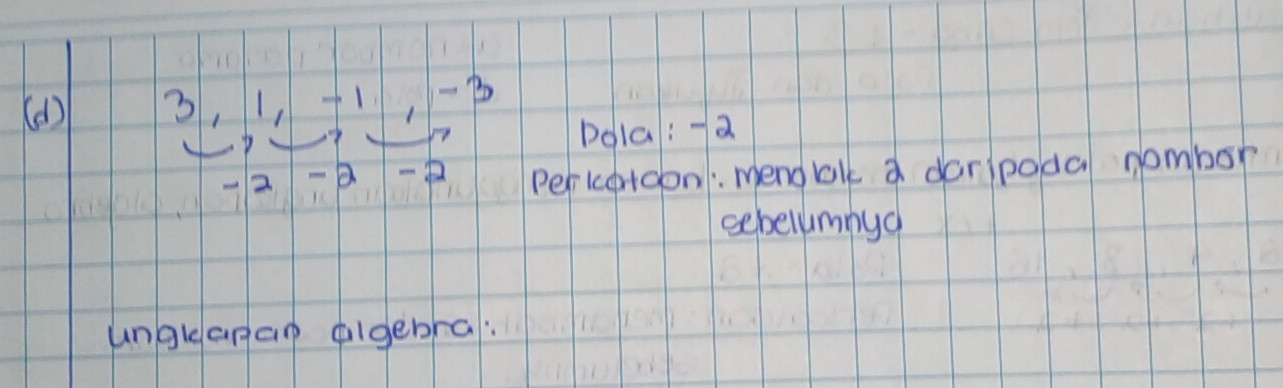 (d) 3, 1, -1, -3
-2 -2 -2
Pola : -2
Perkataan : menolak 2 daripada nombor
sebelumnya
ungkapan algebra :